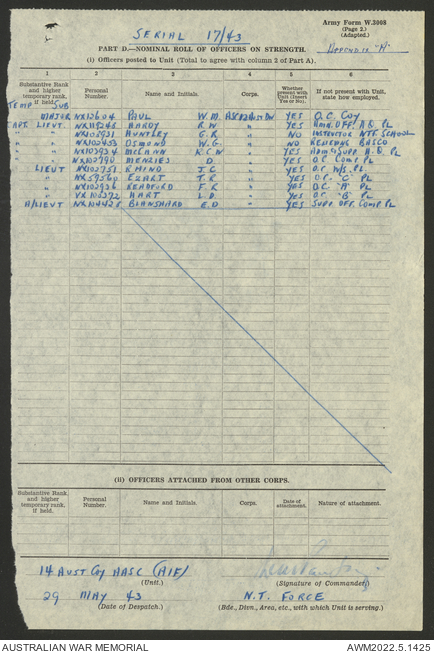 Army Form W.3008
(Page 2.)
(Adapted.)
SERIAL 17/43
APPENDIX "A"
PART D.—NOMINAL ROLL OF OFFICERS ON STRENGTH.
(i) Officers posted to Unit (Total to agree with column 2 of Part A).
1 2 3 4 5 6
Substantive Rank and higher temporary rank, if held. Personal Number. Name and Initials. Corps. Whether present with Unit (Insert Yes or No). If not present with Unit, state how employed.
TEMP SUB
MAJOR NX12604 PAUL W.M. YES O.C. COY
CAPT. LIEUT. HARDY R.W. " YES PL
" " HUNTLEY G.R. " NO INSTRUCTOR N.T.F. SCHOOL
" " OSMOND W.G. " NO BASCO
" " MCCANN R.C.W. " YES PL
" " MENZIES D. " YES O.C. COMP. PL
LIEUT J.C. " YES O.C. W/S. PL
" NX59560 T.R. " YES O.C. "C" PL
" F.R. " YES O.C. "A" PL
" HART L.D. " YES O.C. "B" PL
A/LIEUT BLANSHARD E.D. " YES SUPP. OFF. COMP. PL
(ii) OFFICERS ATTACHED FROM OTHER CORPS.
Substantive Rank and higher temporary rank, if held. Personal Number. Name and Initials. Corps. Date of attachment. Nature of attachment.
14 AUST COY AASC (AIF)
(Unit.) (Signature of Commander)
29 MAY 43 N.T. FORCE
(Date of Despatch.) (Bde., Divn., Area, etc., with which Unit is serving.)
AUSTRALIAN WAR MEMORIAL AWM2022.5.1425